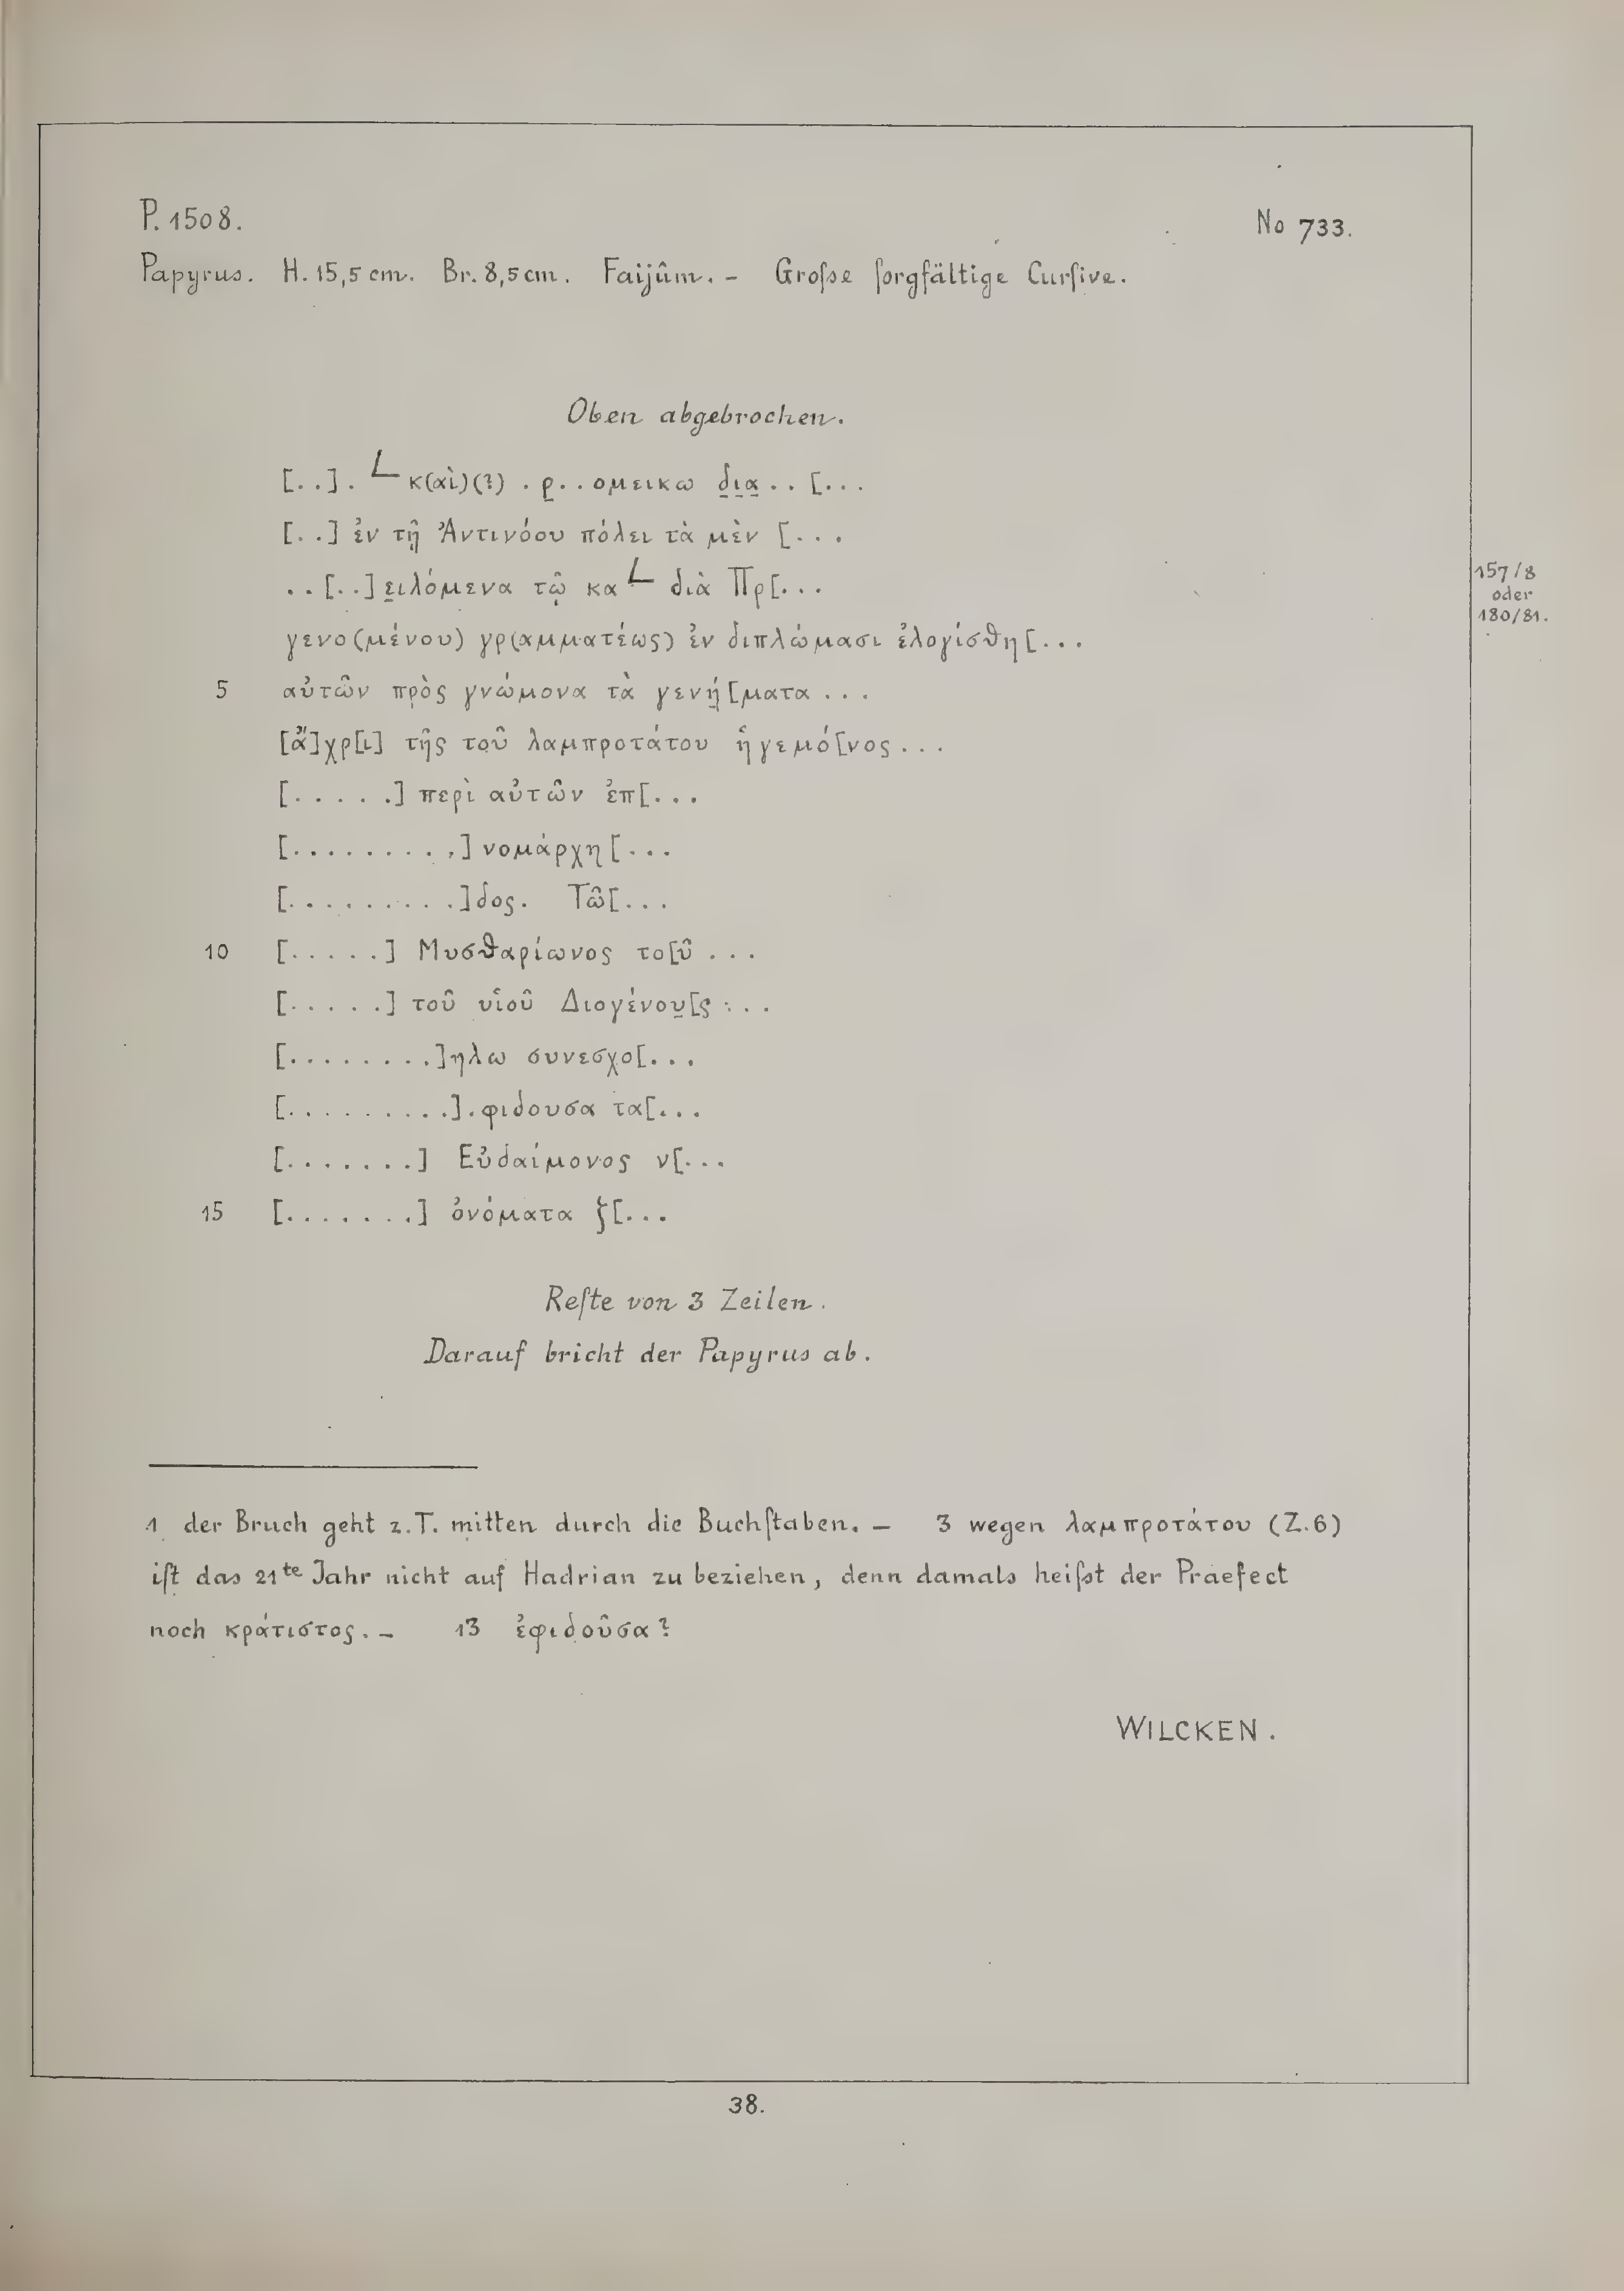 P. 1508.
No 733.
Papyrus. H. 15,5 cm. Br. 8,5 cm. Faijûm. – Groſse ſorgfältige Curſive.
Oben abgebrochen.
[..]. L κ(αὶ)(?) . ρ̣..ομεικω δ̣ι̣α̣..[...
[..] ἐν τῇ Ἀντινόου πόλει τὰ μὲν [...
157/8
oder
180/81.
..[..]ε̣ιλόμενα τῷ κα L διὰ Πρ[...
γενο(μένου) γρ(αμματέως) ἐν διπλώμασι ἐλογίσθη[...
5 αὐτῶν πρὸς γνώμονα τὰ γενή̣[ματα...
[ἄ]χρ[ι] τῆς τοῦ λαμπροτάτου ἡγεμό[νος...
[.....] περὶ αὐτῶν ἐπ[...
[..........] νομάρχη[...
[..........]δος. Τῶ[...
10 [.....] Μυσθαρίωνος το[ῦ ...
[.....] τοῦ υἱοῦ Διογένου̣[ς ...
[........]ηλω συνεσχο[...
[..........].φιδουσα τα[...
[.......] Εὐδαίμονος ν[...
15 [.......] ὀνόματα ξ[...
Reſte von 3 Zeilen.
Darauf bricht der Papyrus ab.
1 der Bruch geht z.T. mitten durch die Buchſtaben. – 3 wegen λαμπροτάτου (Z.6)
iſt das 21te Jahr nicht auf Hadrian zu beziehen, denn damals heiſst der Praefect
noch κράτιστος. – 13 ἐφιδοῦσα?
WILCKEN.
38.